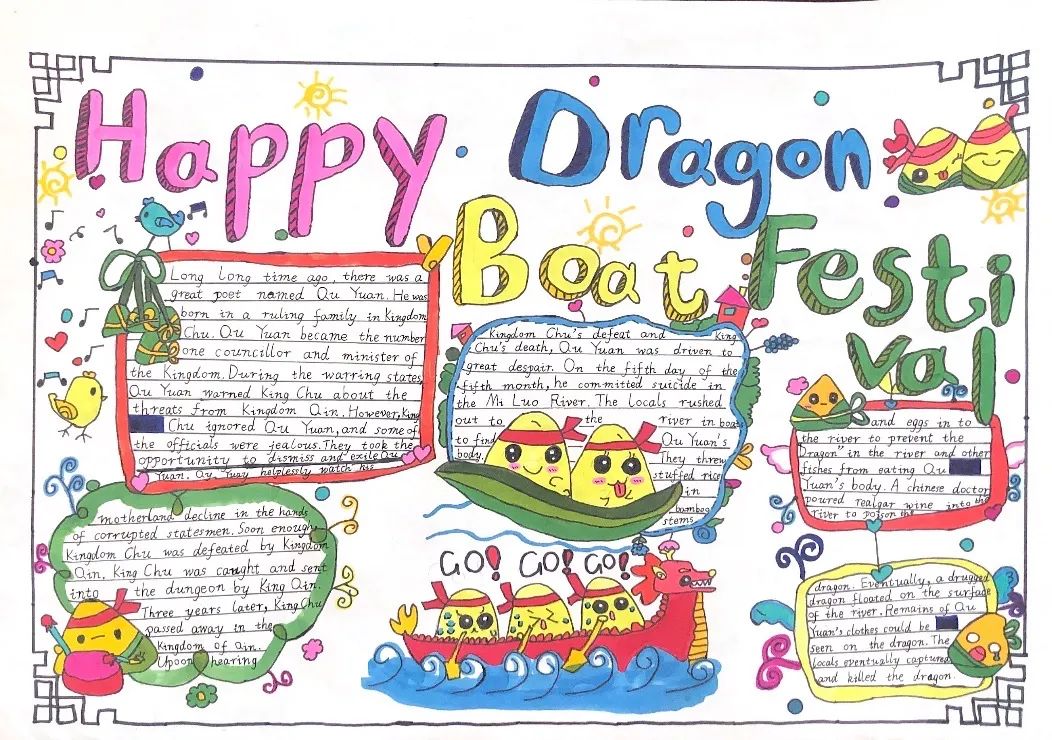 Happy Dragon
Boat Festi
val
Long Long time ago, there was a
great poet named Qu Yuan. He was
born in a ruling family in Kingdom
Chu. Qu Yuan became the number
one councillor and minister of
the Kingdom. During the warring states
Qu Yuan warned King Chu about the
threats from Kingdom Qin. However, King
Chu ignored Qu Yuan, and some of
the officials were jealous. They took the
opportunity to dismiss and exile Qu
Yuan. Qu Yuan helplessly watch his
motherland decline in the hands
of corrupted statesmen. Soon enough
Kingdom Chu was defeated by Kingdom
Qin. King Chu was caught and sent
into the dungeon by King Qin.
Three years later, King Chu
passed away in the
Kingdom of Qin.
Upoon hearing
Kingdom Chu's defeat and King
Chu's death, Qu Yuan was driven to
great despair. On the fifth day of the
fifth month, he committed suicide in
the Mi Luo River. The locals rushed
out to the river in boa
to find Qu Yuan's
body. They threw
stuffed rice
in
bamboo
stems
and eggs in to
the river to prevent the
Dragon in the river and other
fishes from eating Qu
Yuan's body. A chinese doctor
poured realgar wine into the
river to poison the
dragon. Eventually, a drugged
dragon floated on the surface
of the river. Remains of Qu
Yuan's clothes could be
seen on the dragon. The
locals eventually captured
and killed the dragon.
GO! GO! GO!